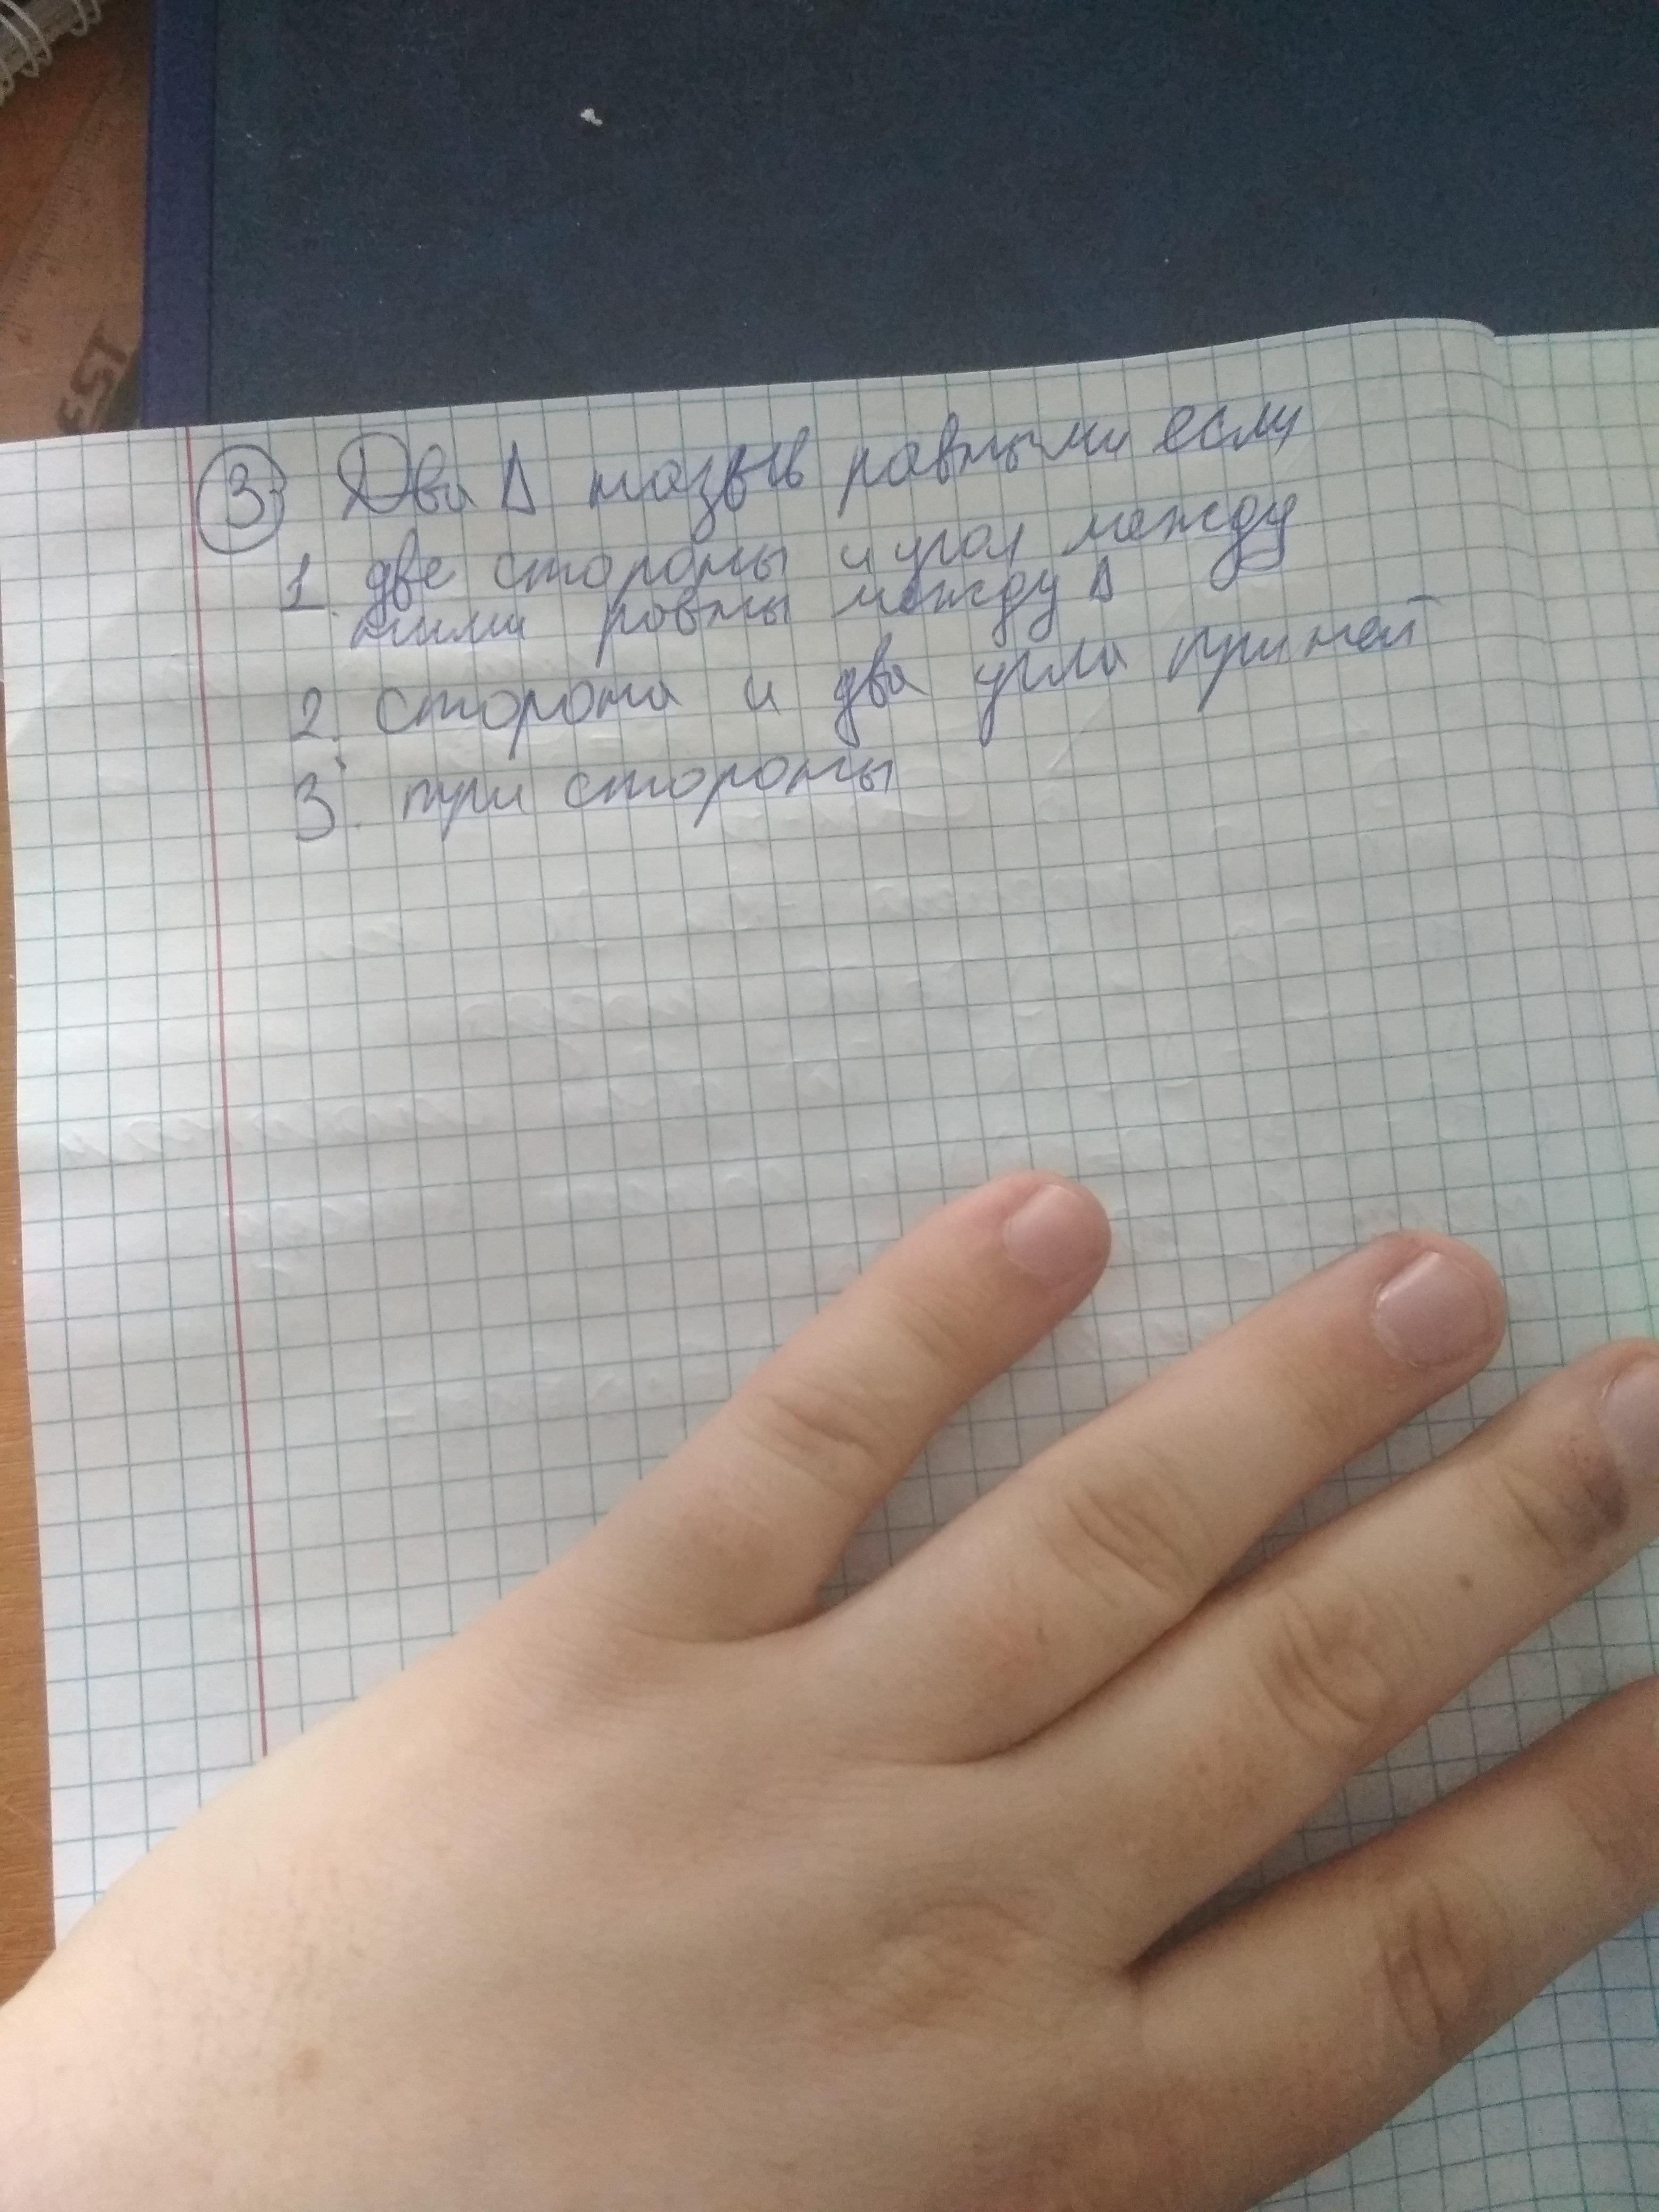 3 Два Δ назыв равными если
1. две стороны и угол между
ними равны между Δ
2. сторона и два угла при ней
3. три стороны
EST